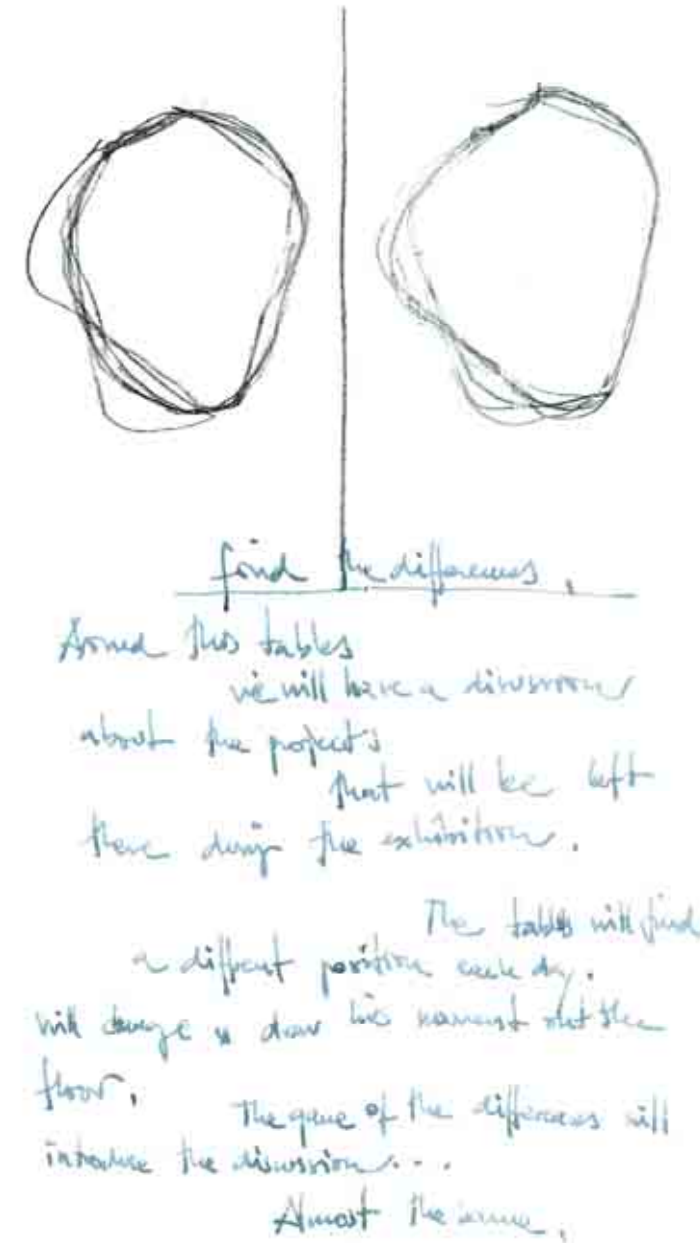 find the differences.
Around this tables
we will have a discussion
about the project's
that will be left
there during the exhibition.
The tables will find
a different position each day.
will draw the
floor.
The game of the differences will
introduce the discussion...
Almost the same.